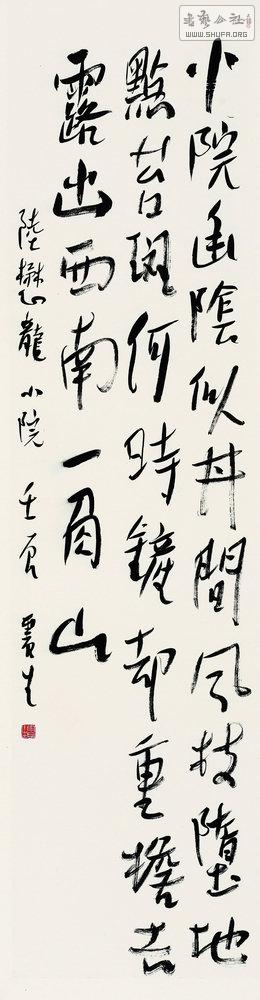 書藝公社
WWW.SHUFA.ORG
小院幽陰似井間風枝墮地
點苔斑何時鏟却重檐去
露出西南一角山
陸懋龍小院 壬 生